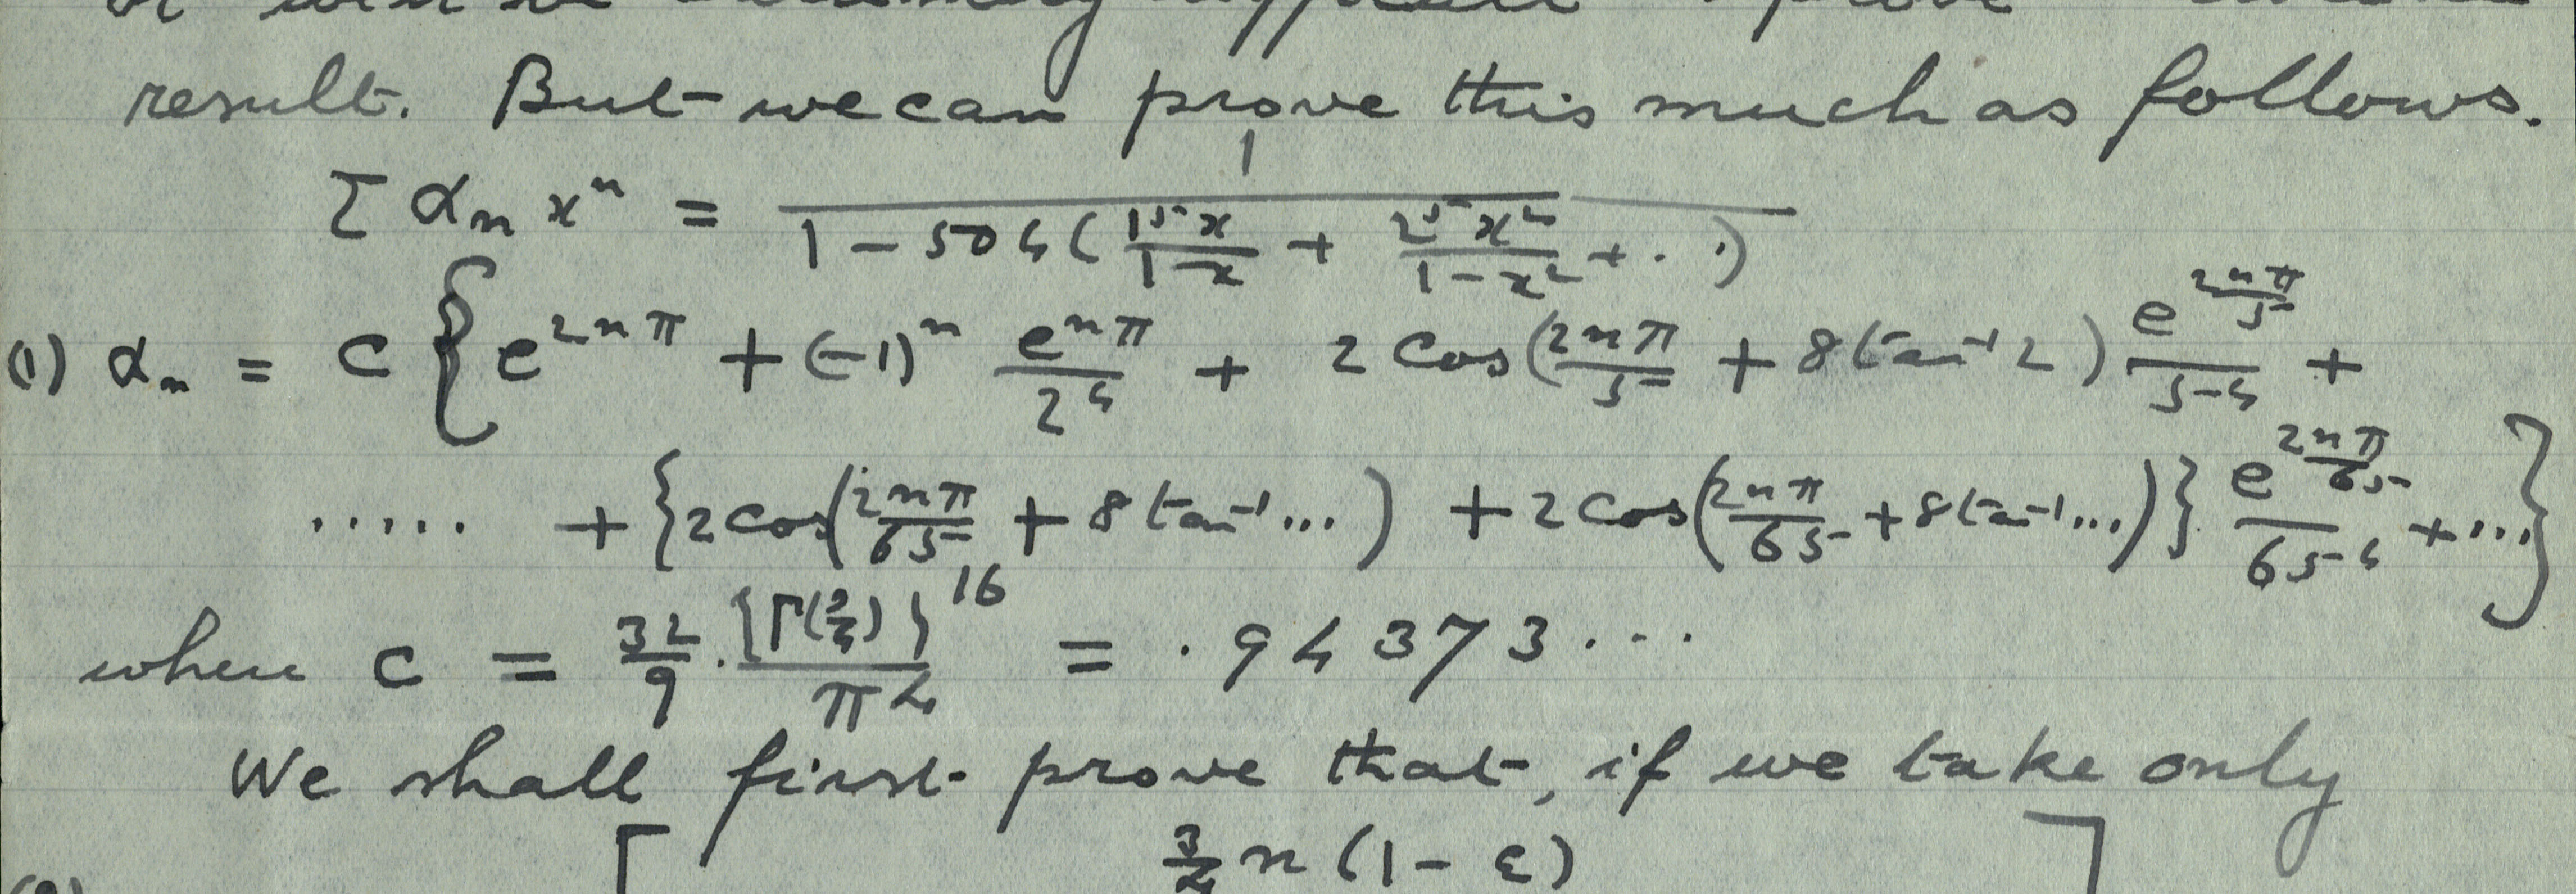 result. But we can prove this much as follows.
Σ αₙ xⁿ = 1 / (1 − 504 (1⁵x/(1−x) + 2⁵x²/(1−x²) + ..))
(1) αₙ = C { e^{2nπ} + (−1)ⁿ e^{nπ}/2⁴ + 2 Cos(2nπ/5 + 8 tan⁻¹ 2) e^{2nπ/5}/5⁴ +
..... + {2 cos(2nπ/65 + 8 tan⁻¹...) + 2 Cos(2nπ/65 + 8 tan⁻¹...)} e^{2nπ/65}/65⁴ + ...}
where C = 32/9 . {Γ(3/4)}¹⁶/π⁴ = .94373...
We shall first prove that, if we take only
[ 3/2 n (1 − ε) ]